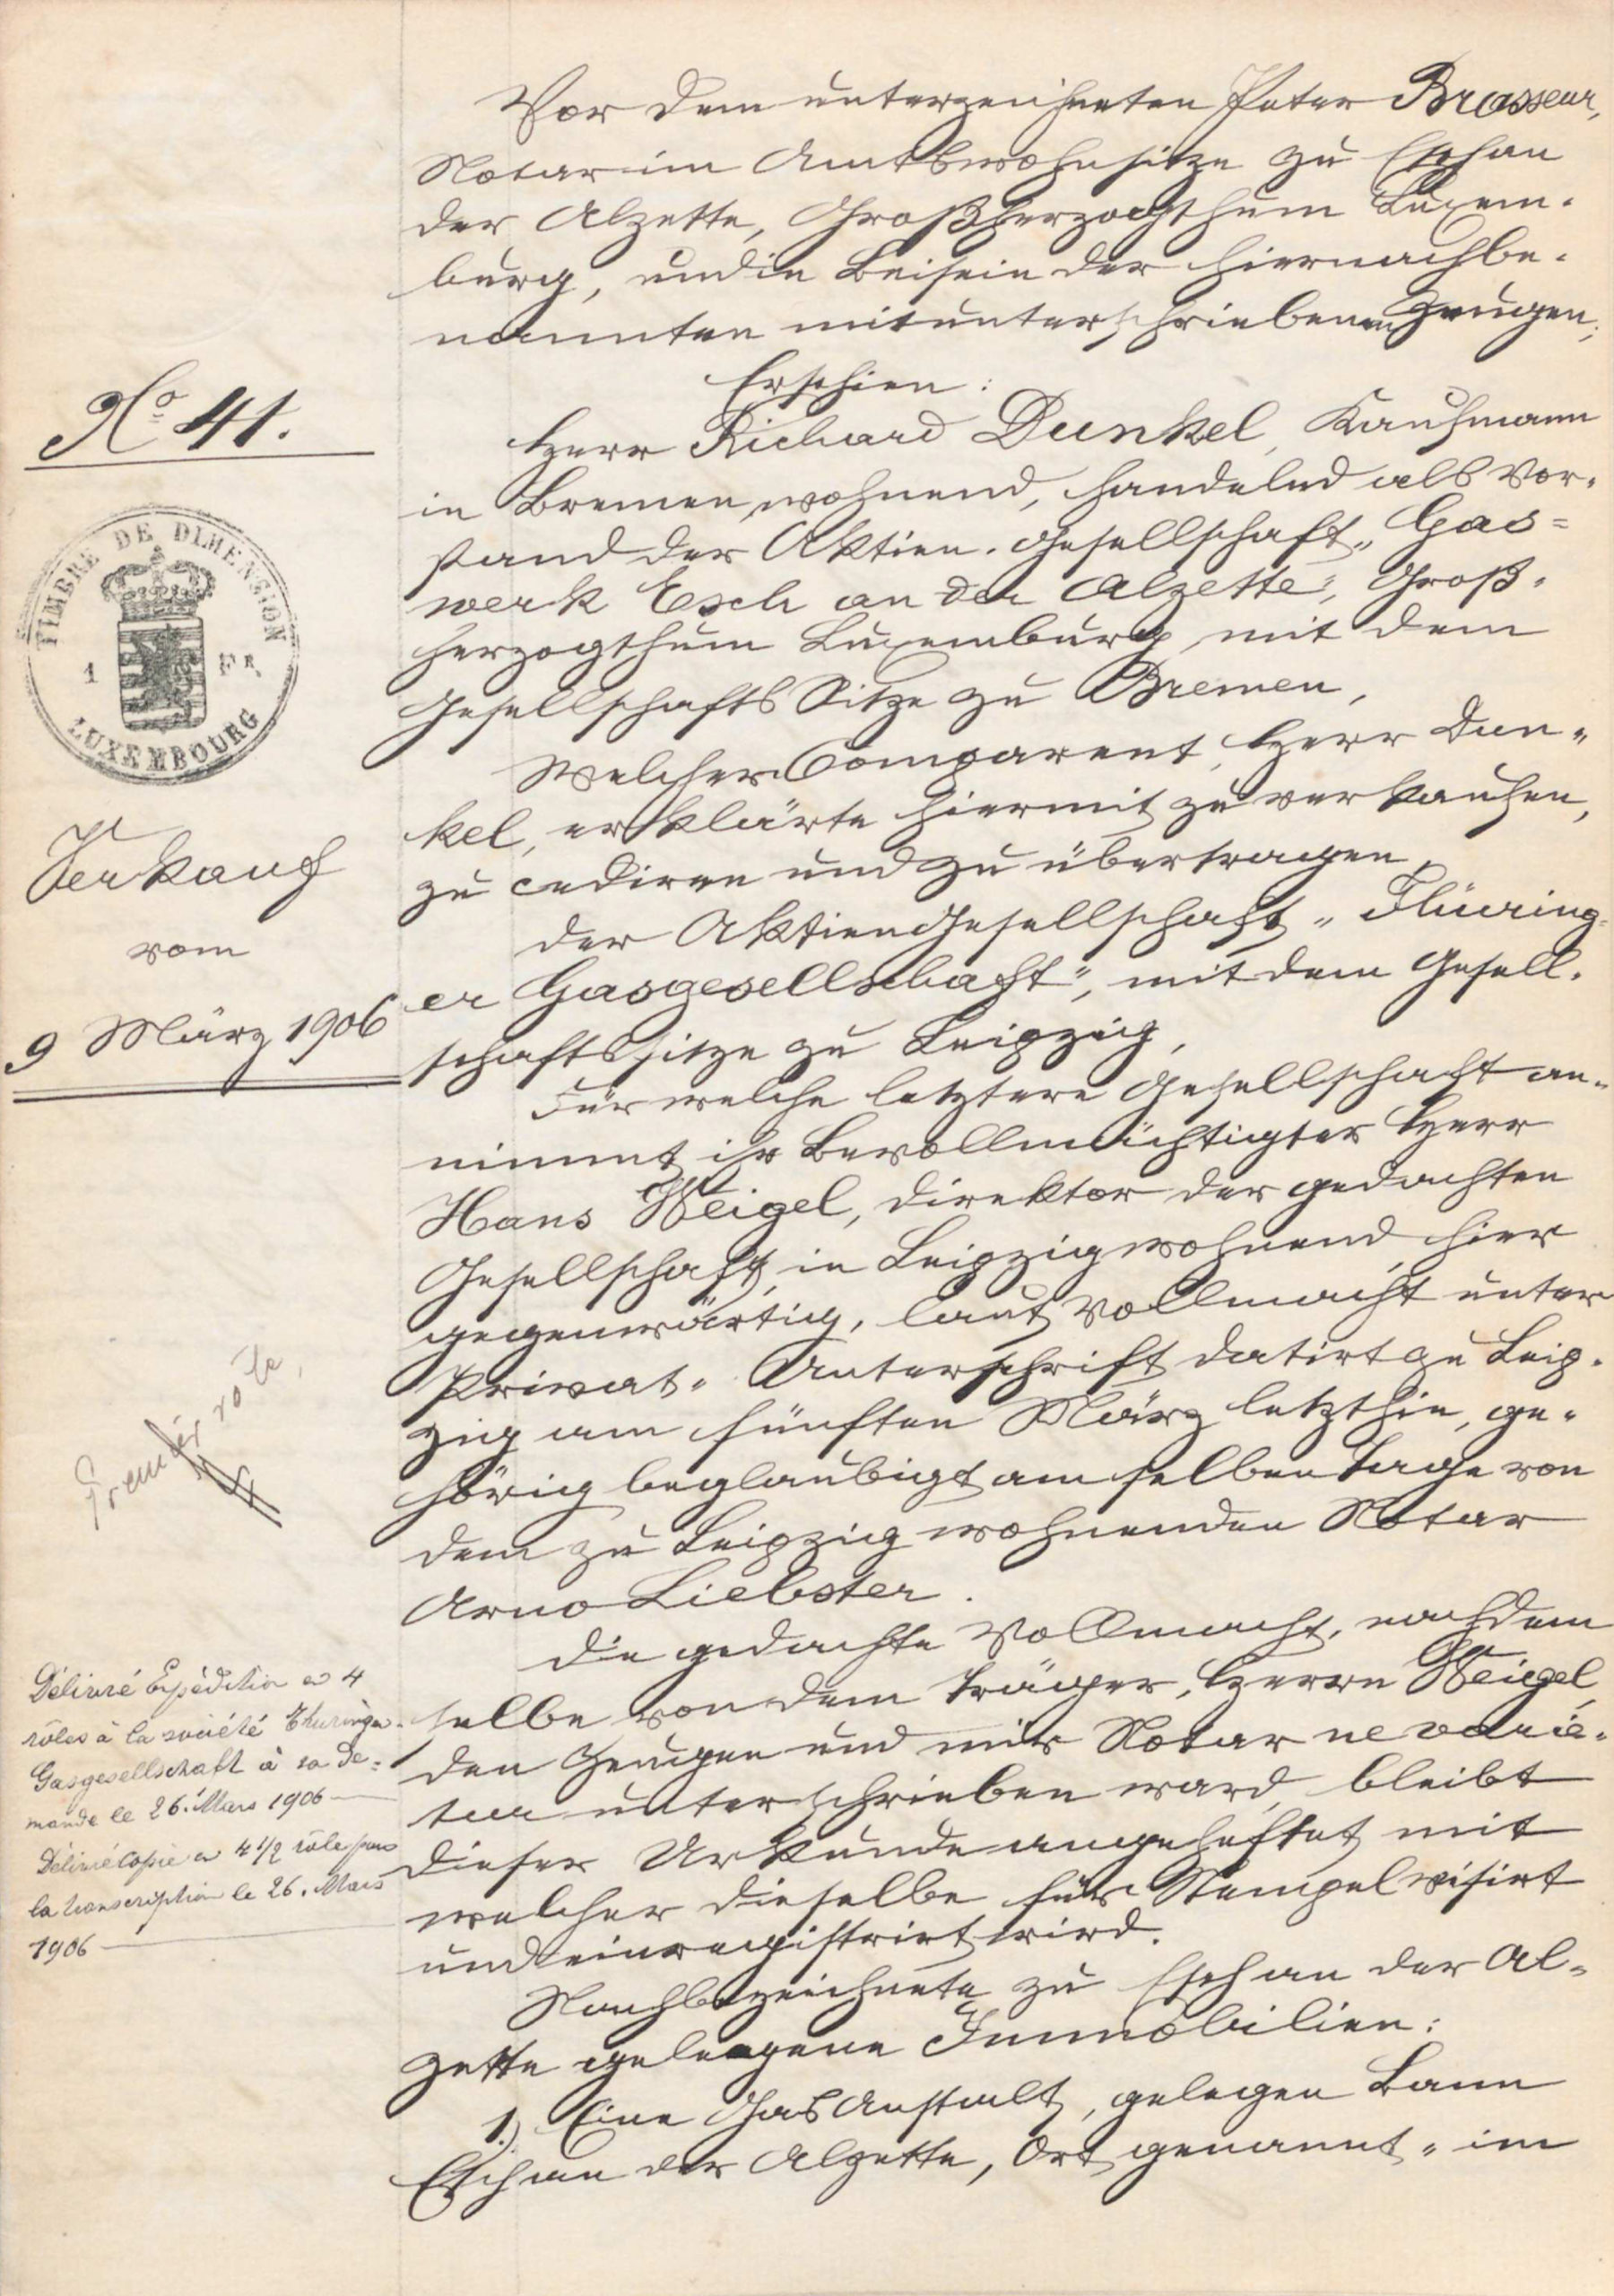 Vor dem unterzeichneten Peter Brasseur,
Notar im Amtswohnsitze zu Esch an
der Alzette, Großherzogthum Luxem-
burg, und in Beisein der hiernachbe-
nannten mitunterschriebenen Zeugen;
Erschien:
Herr Richard Dunkel, Kaufmann
in Bremen wohnend, handelnd als Vor-
stand der Aktien-Gesellschaft „Gas=
werk Esch an der Alzette“, Groß-
herzogthum Luxemburg, mit dem
Gesellschafts Sitze zu Bremen,
Welcher Comparent, Herr Dun-
kel, erklärte hiermit zu verkaufen,
zu cediren und zu übertragen,
der Aktiengesellschaft „Thüring-
er Gasgesellschaft“, mit dem Gesell-
schaftssitze zu Leipzig,
Für welche letztere Gesellschaft an-
nimmt ihr Bevollmächtigter Herr
Hans Weigel, Direktor der gedachten
Gesellschaft, in Leipzig wohnend hier
gegenwärtig, laut Vollmacht unter
Privat-Unterschrift datirt zu Leip-
zig am fünften März letzthin, ge-
hörig beglaubigt am selben Tage von
dem zu Leipzig wohnenden Notar
Arno Liebster.
Die gedachte Vollmacht, nachdem
selbe von dem Träger, Herrn Weigel,
den Zeugen und mir Notar ne varie-
tur unterschrieben ward, bleibt
dieser Urkunde angeheftet mit
welcher dieselbe für Stempel visirt
und einregistrirt wird.
Nachbezeichnete zu Esch an der Al-
zette gelegene Immobilien:
1.) Eine Gas Anstalt, gelegen Bann
Esch an der Alzette, Ort genannt „im
No 41.
TIMBRE DE DIMENSION
1 FR.
LUXEMBOURG
Verkauf
vom
9 März 1906
Premier rôle,
Délivré Expédition en 4
rôles à la société Thuringer
Gasgesellschaft à sa de=
mande le 26. Mars 1906
Délivré copie en 4 1/2 rôle pour
la transcription le 26. Mars
1906